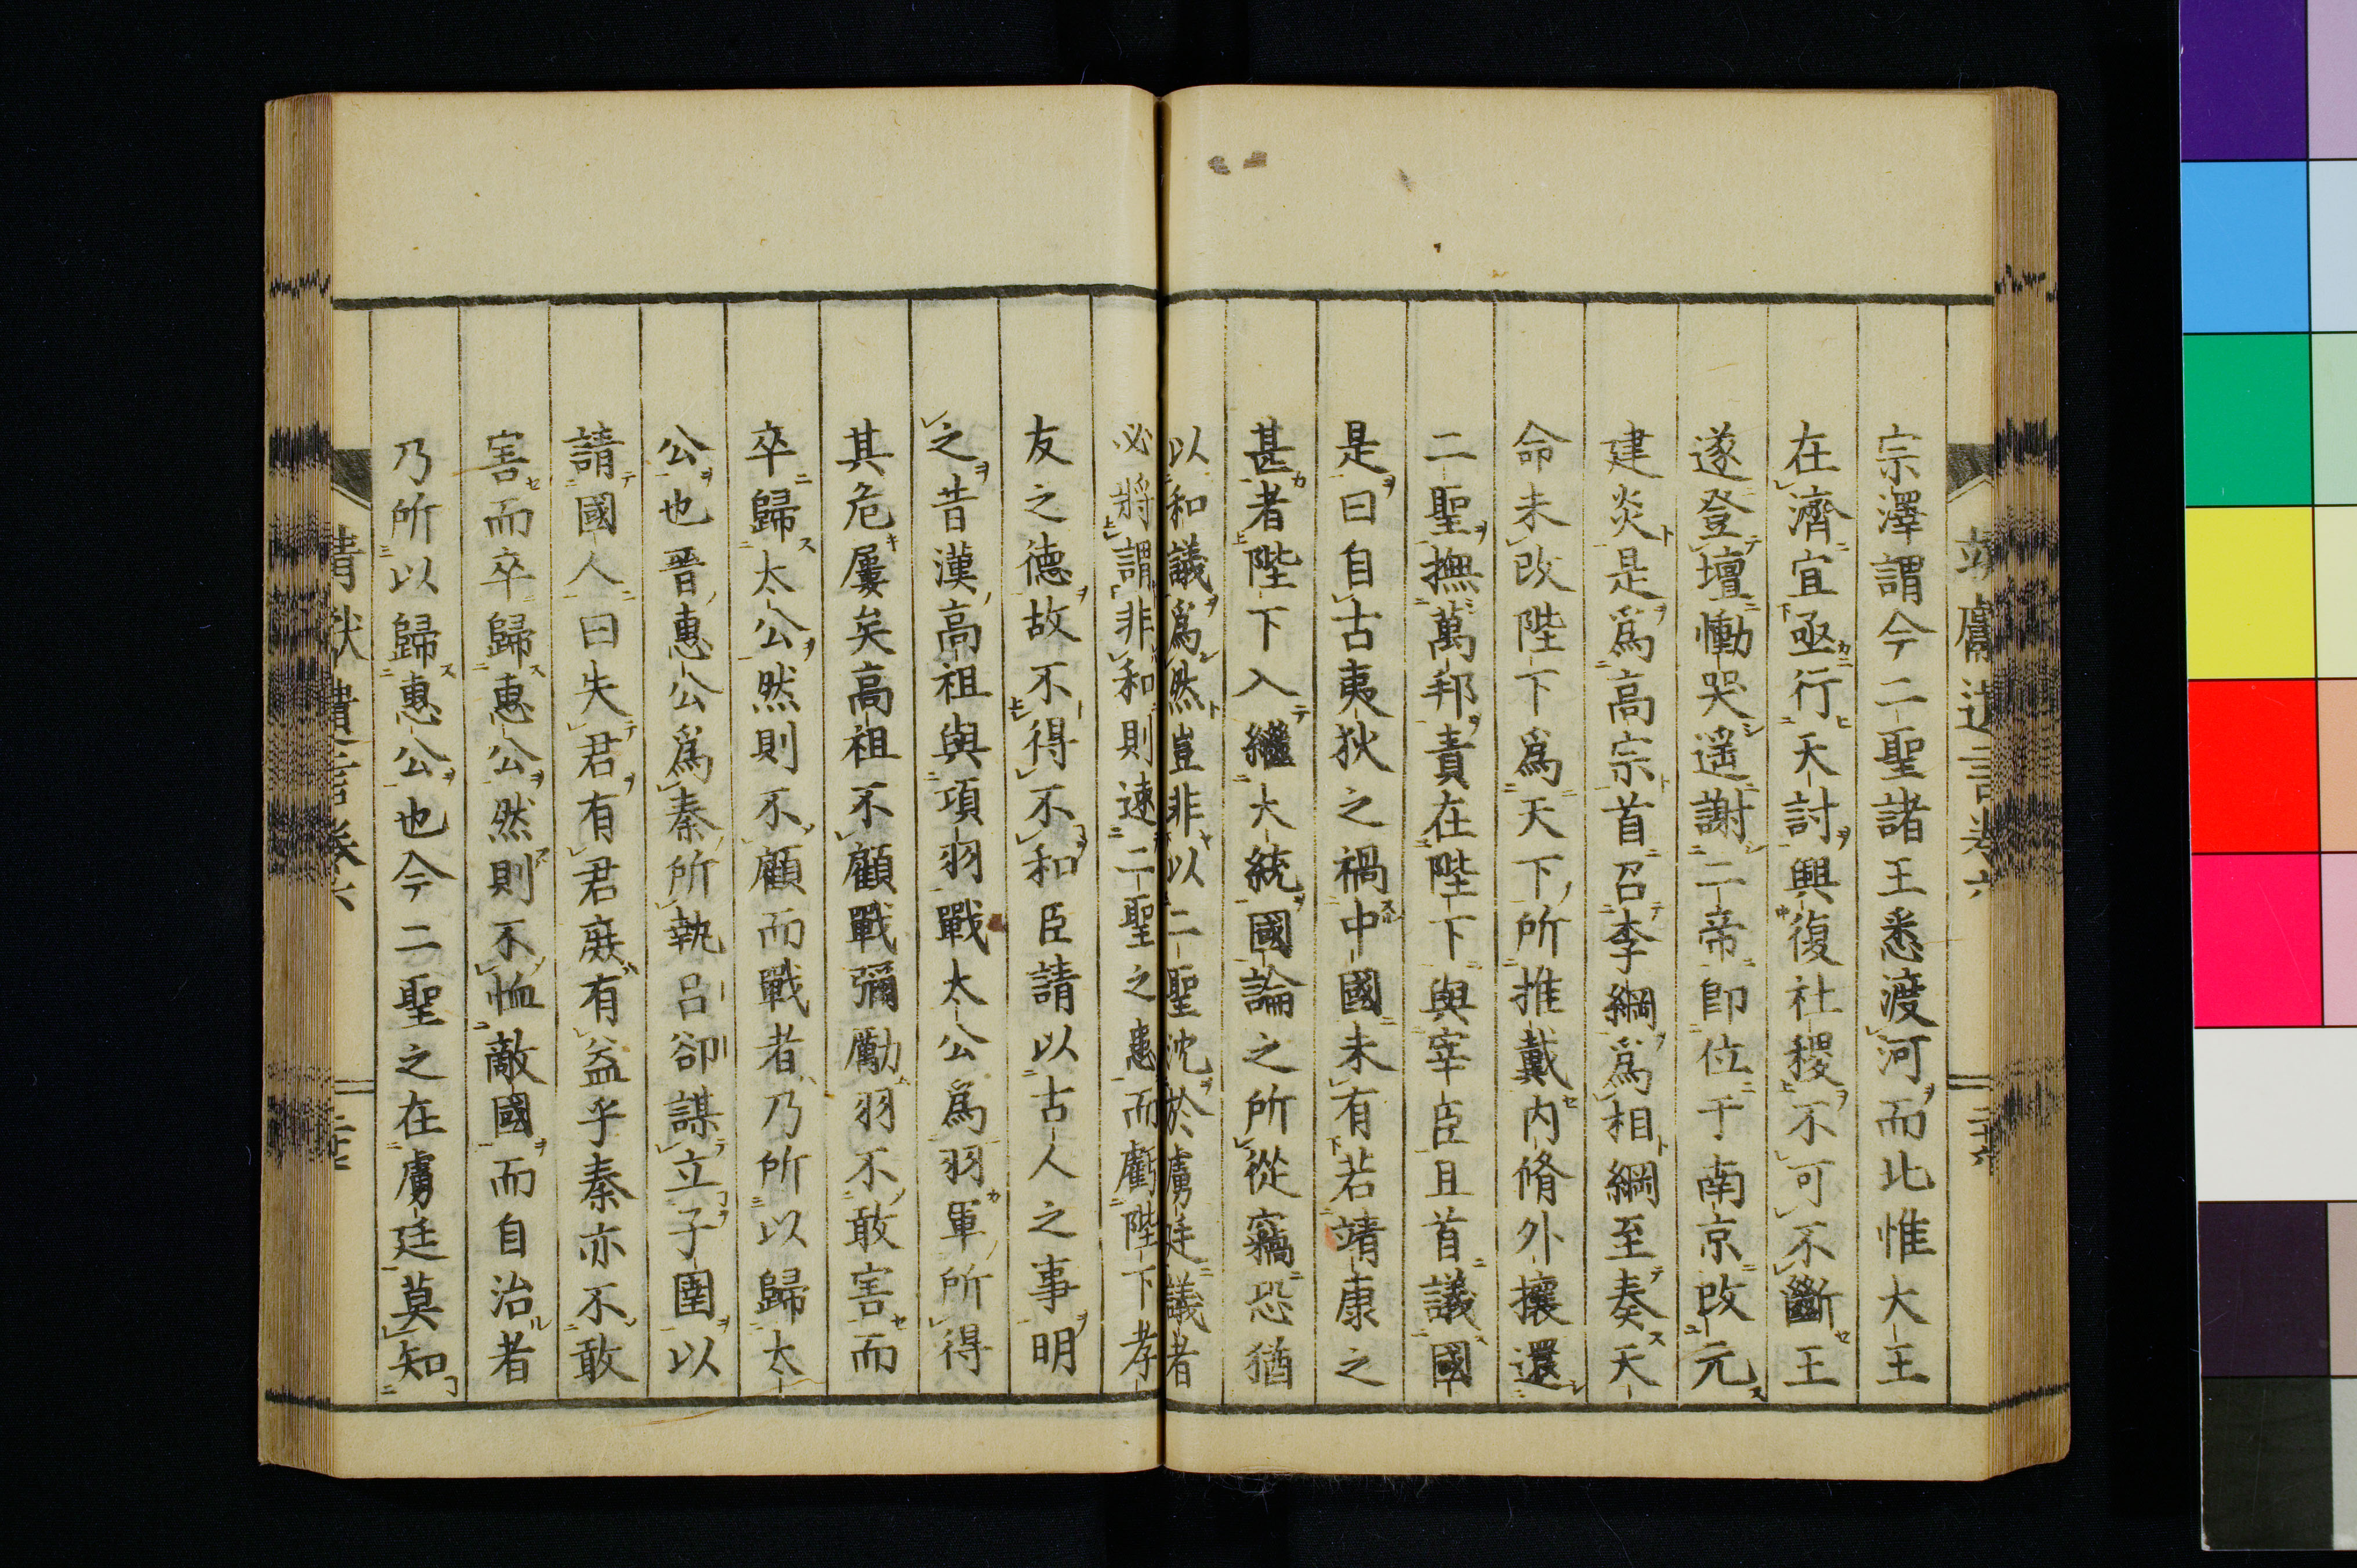 宗澤謂今二聖諸王悉渡河而北惟大王
在濟宜亟行天討興復社稷不可不斷王
遂登壇慟哭遥謝二帝卽位于南京改元
建炎是爲高宗首召李綱爲相綱至奏天
命未改陛下爲天下所推戴內脩外攘還
二聖撫萬邦責在陛下與宰臣且首議國
是曰自古夷狄之禍中國未有若靖康之
甚者陛下入繼大統國論之所從竊恐猶
以和議爲然豈非以二聖沈於虜廷議者
必將謂非和則速二聖之患而虧陛下孝
友之德故不得不和臣請以古人之事明
之昔漢高祖與項羽戰太公爲羽軍所得
其危屢矣高祖不顧戰彌勵羽不敢害而
卒歸太公然則不顧而戰者乃所以歸太
公也晉惠公爲秦所執呂卻謀立子圉以
請國人曰失君有君庶有益乎秦亦不敢
害而卒歸惠公然則不恤敵國而自治者
乃所以歸惠公也今二聖之在虜廷莫知